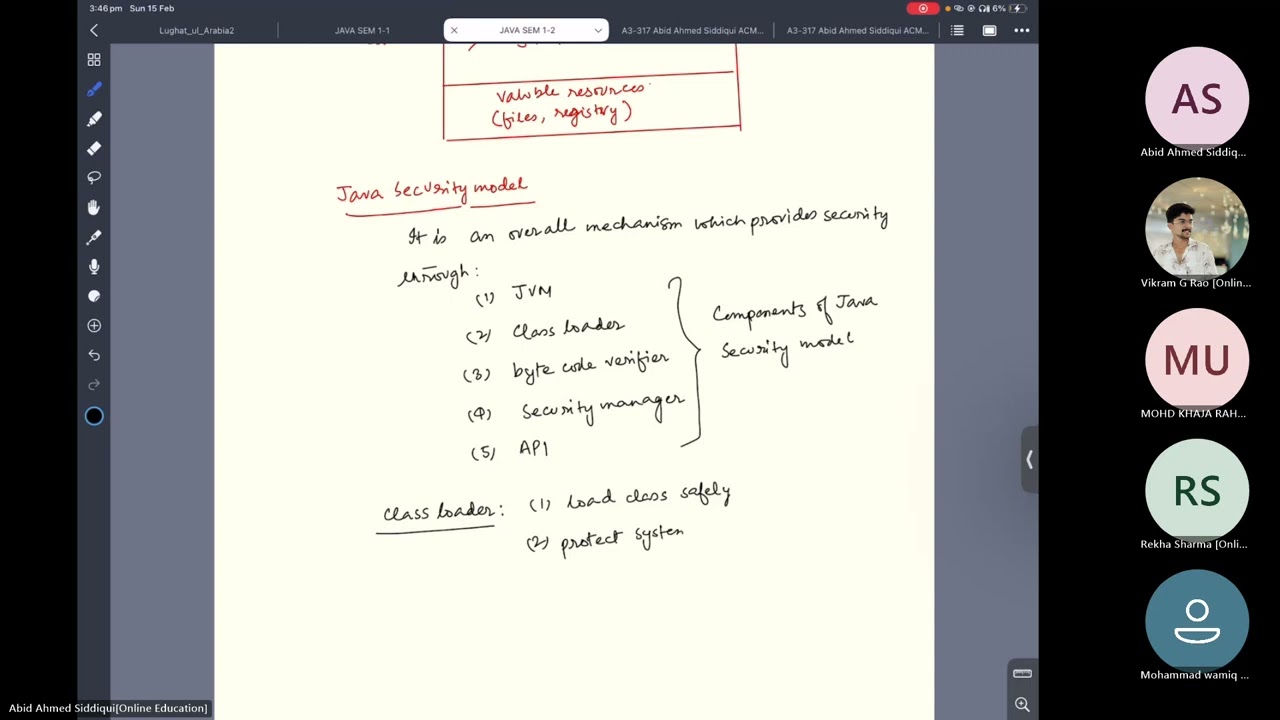 3:46 pm Sun 15 Feb
6%
Lughat_ul_Arabia2
JAVA SEM 1-1
JAVA SEM 1-2
A3-317 Abid Ahmed Siddiqui ACM...
A3-317 Abid Ahmed Siddiqui ACM...
valuble resources
(files, registry)
Java Security model
It is an overall mechanism which provides security
through:
(1) JVM
(2) Class loader
(3) byte code verifier
(4) Security manager
(5) API
Components of Java
Security model
class loader: (1) load class safely
(2) protect system
AS
Abid Ahmed Siddiq...
Vikram G Rao [Onlin...
MU
MOHD KHAJA RAH...
RS
Rekha Sharma [Onli...
Mohammad wamiq ...
Abid Ahmed Siddiqui[Online Education]